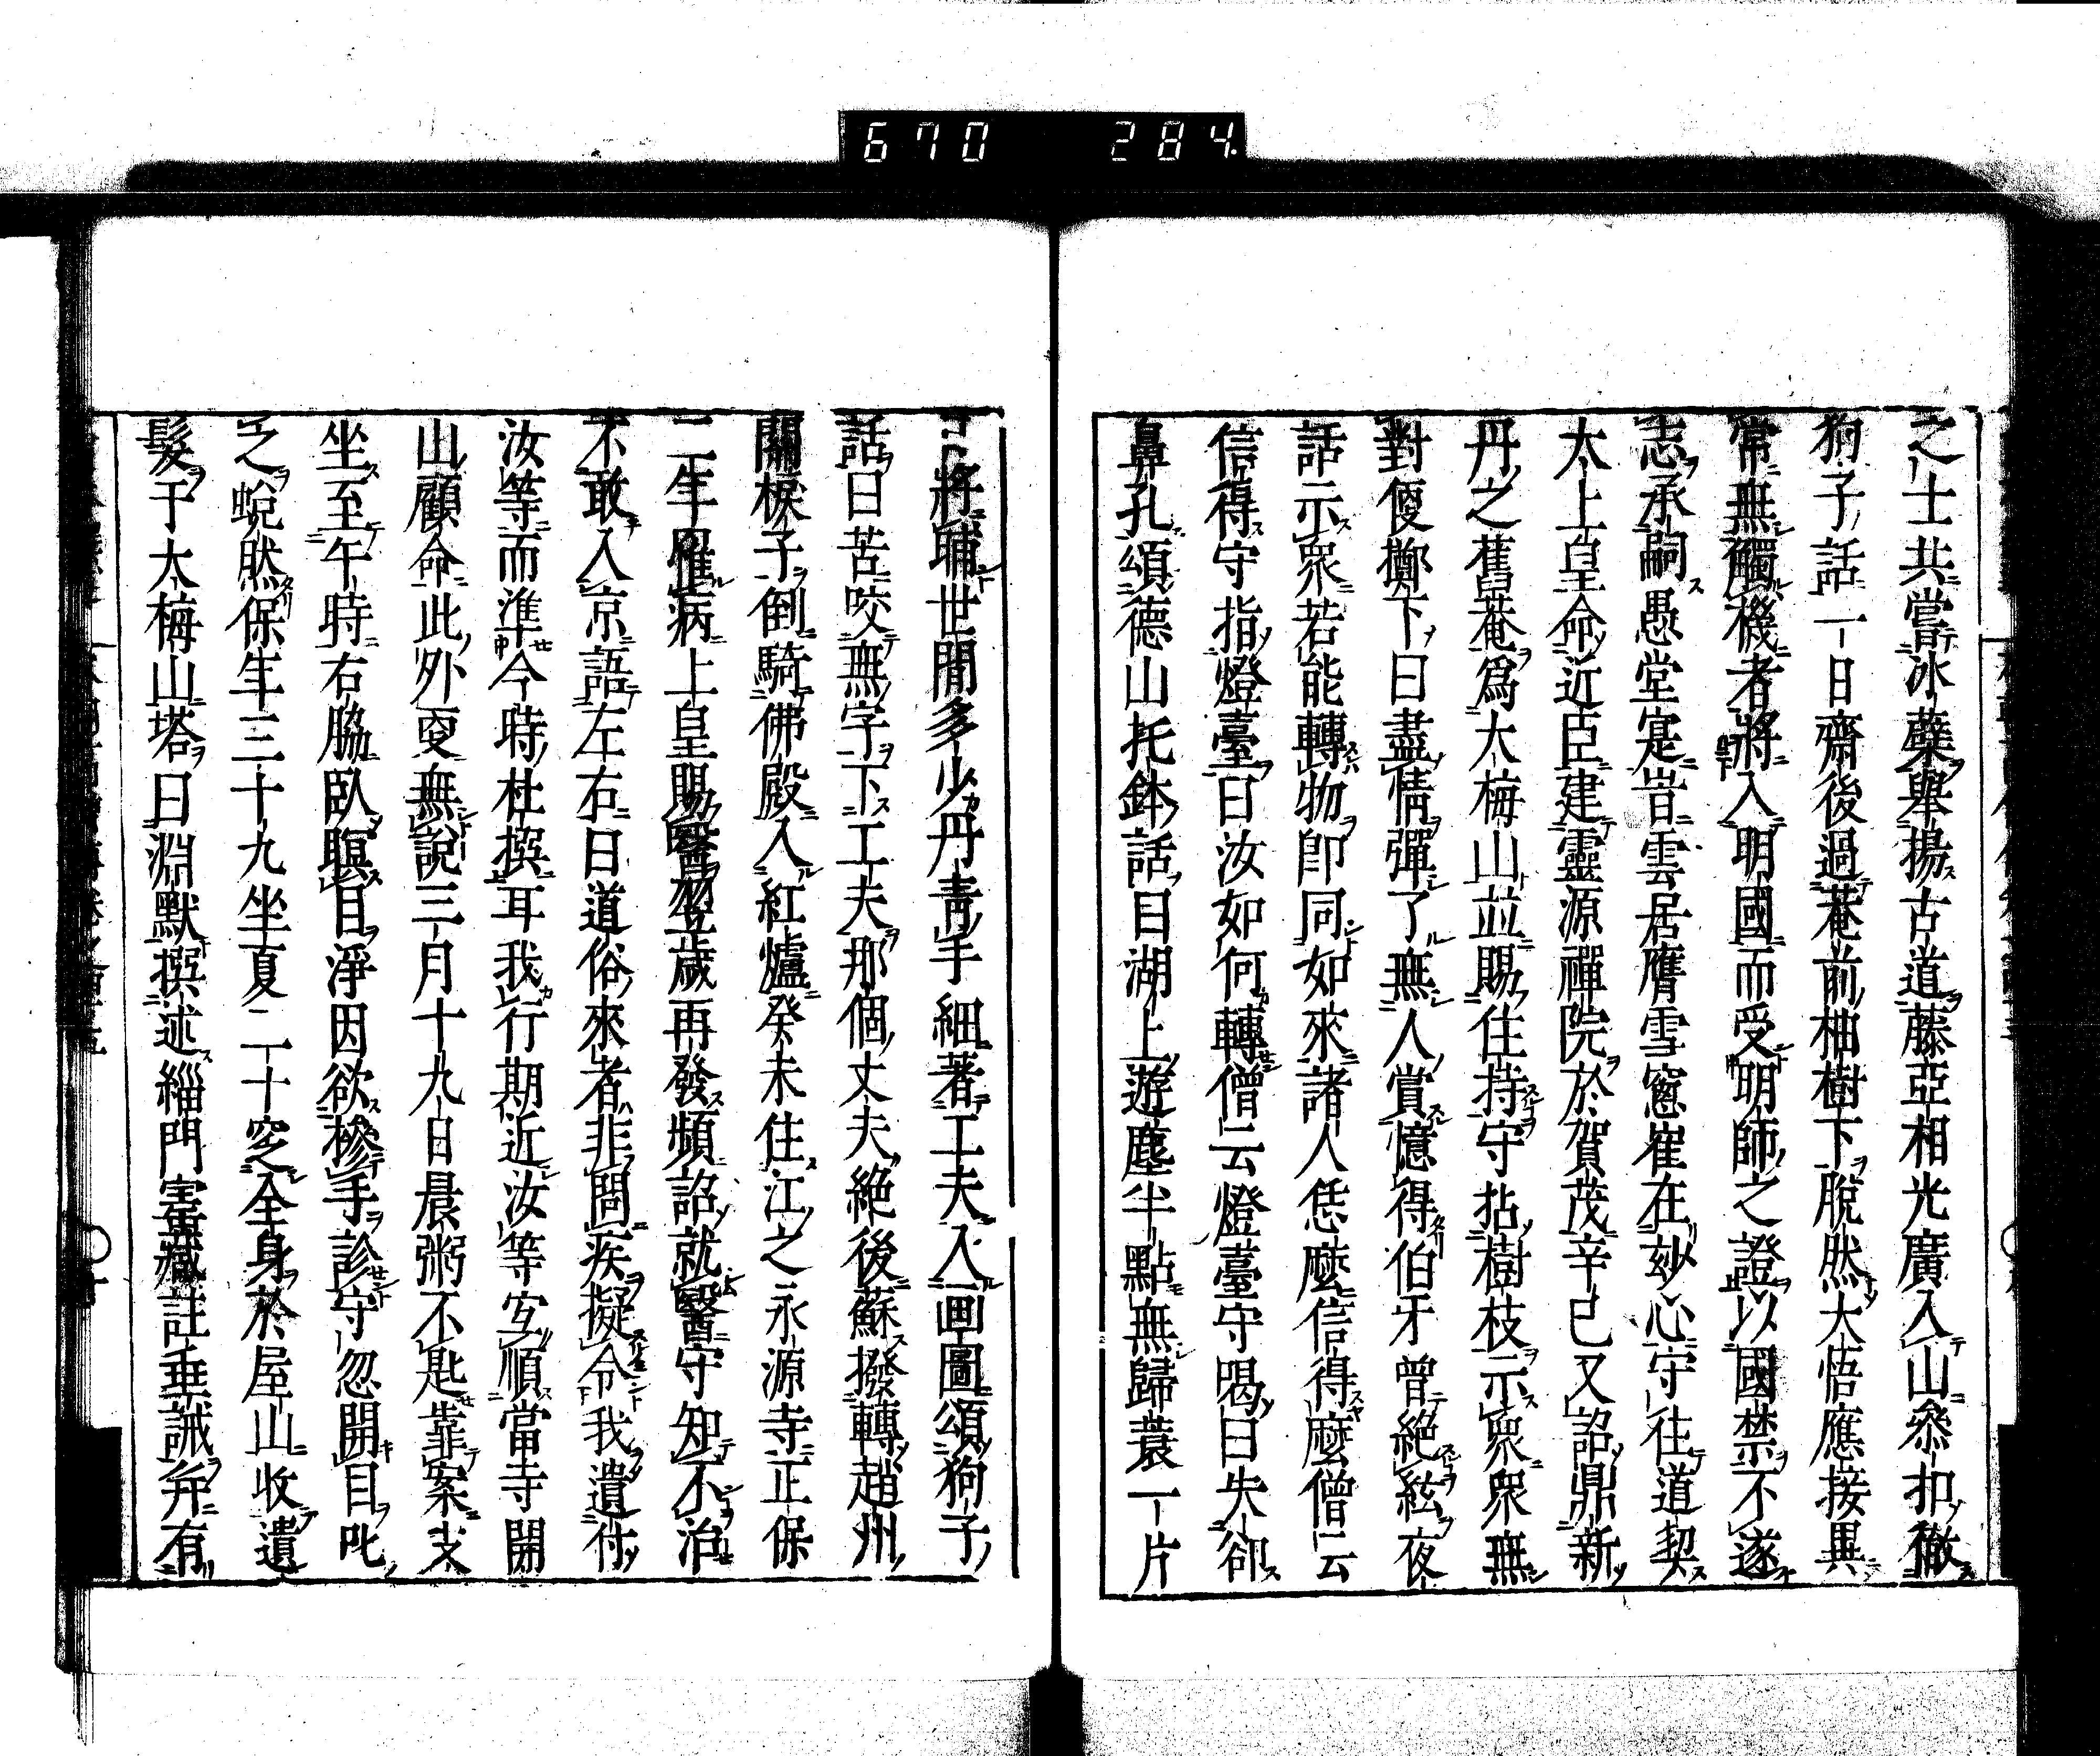 670 284
之士共嘗冰蘗舉揚古道藤亞相光廣入山叅扣徹
狗子話一日齋後過菴前柚樹下脫然大悟應接異
常無觸機者將入明國而受明師之證以國禁不遂
志承嗣愚堂寔峕雲居膺雪窻崔在玅心守往道契
太上皇命近臣建靈源禪院於賀茂辛巳又詔鼎新
丹之舊菴爲大梅山並賜住持守拈樹枝示衆衆無
對便擲下曰盡情彈了無人賞憶得伯牙曾絕絃夜
話示衆若能轉物卽同如來諸人恁麼信得麼僧云
信得守指燈臺曰汝如何轉僧云燈臺守喝曰失卻
鼻孔頌德山托鉢話曰湖上遊塵半點無歸蓑一片
將補世間多少丹靑手細著工夫入画圖頌狗子
話曰苦咬無字下工夫那個丈夫絕後蘇撥轉趙州
關棙子倒騎佛殿入紅爐癸未住江之永源寺正保
二年罹病上皇賜醫翌歲再發頻詔就醫守知不治
不敢入京語左右曰道俗來者非問疾擬令我遺付
汝等而準今時杜撰耳我行期近汝等宐順當寺開
山顧命此外更無說三月十九日晨粥不匙靠案支
坐至午時右脇臥瞑目淨因欲摻手診守忽開目叱
之蛻然保生三十九坐夏二十窆全身於屋山收遺
髮于大梅山塔曰淵默撰述緇門寶藏註垂誡弁有